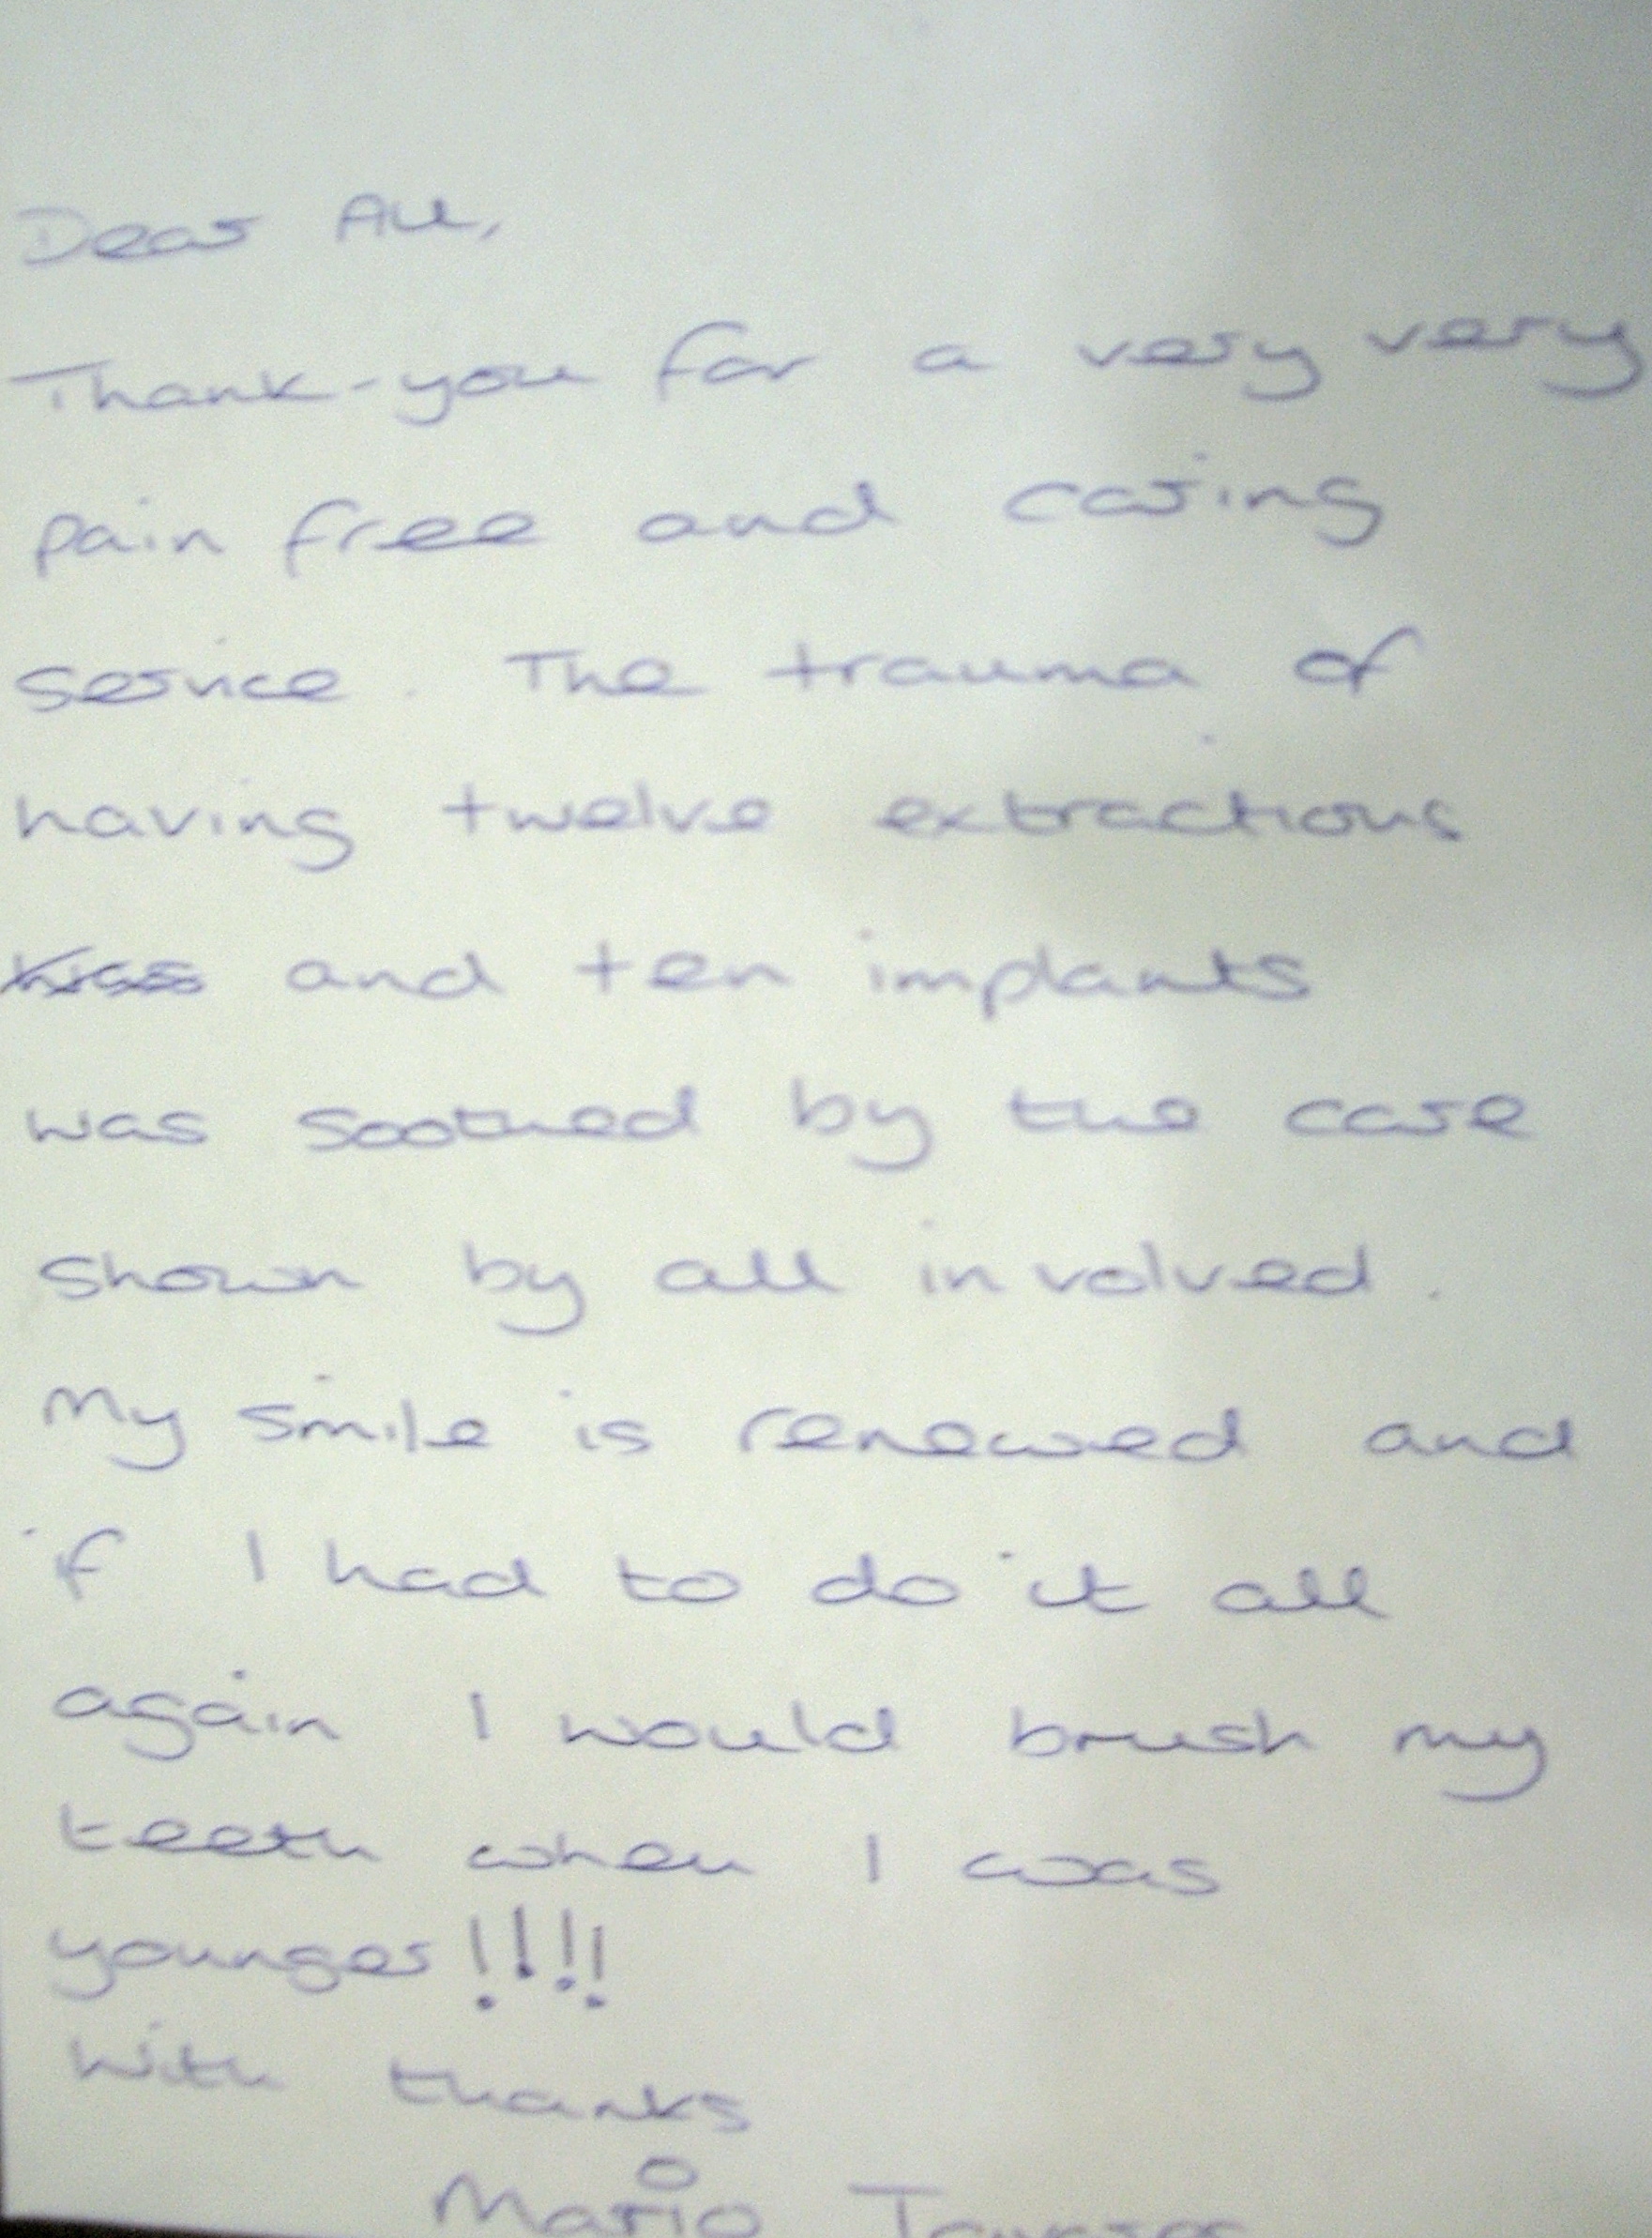 Dear All,
Thank-you for a very very
pain free and caring
service. The trauma of
having twelve extractions
and ten implants
was soothed by the care
shown by all involved.
My smile is renewed and
if I had to do it all
again I would brush my
teeth when I was
younger!!!!
With thanks
Mario